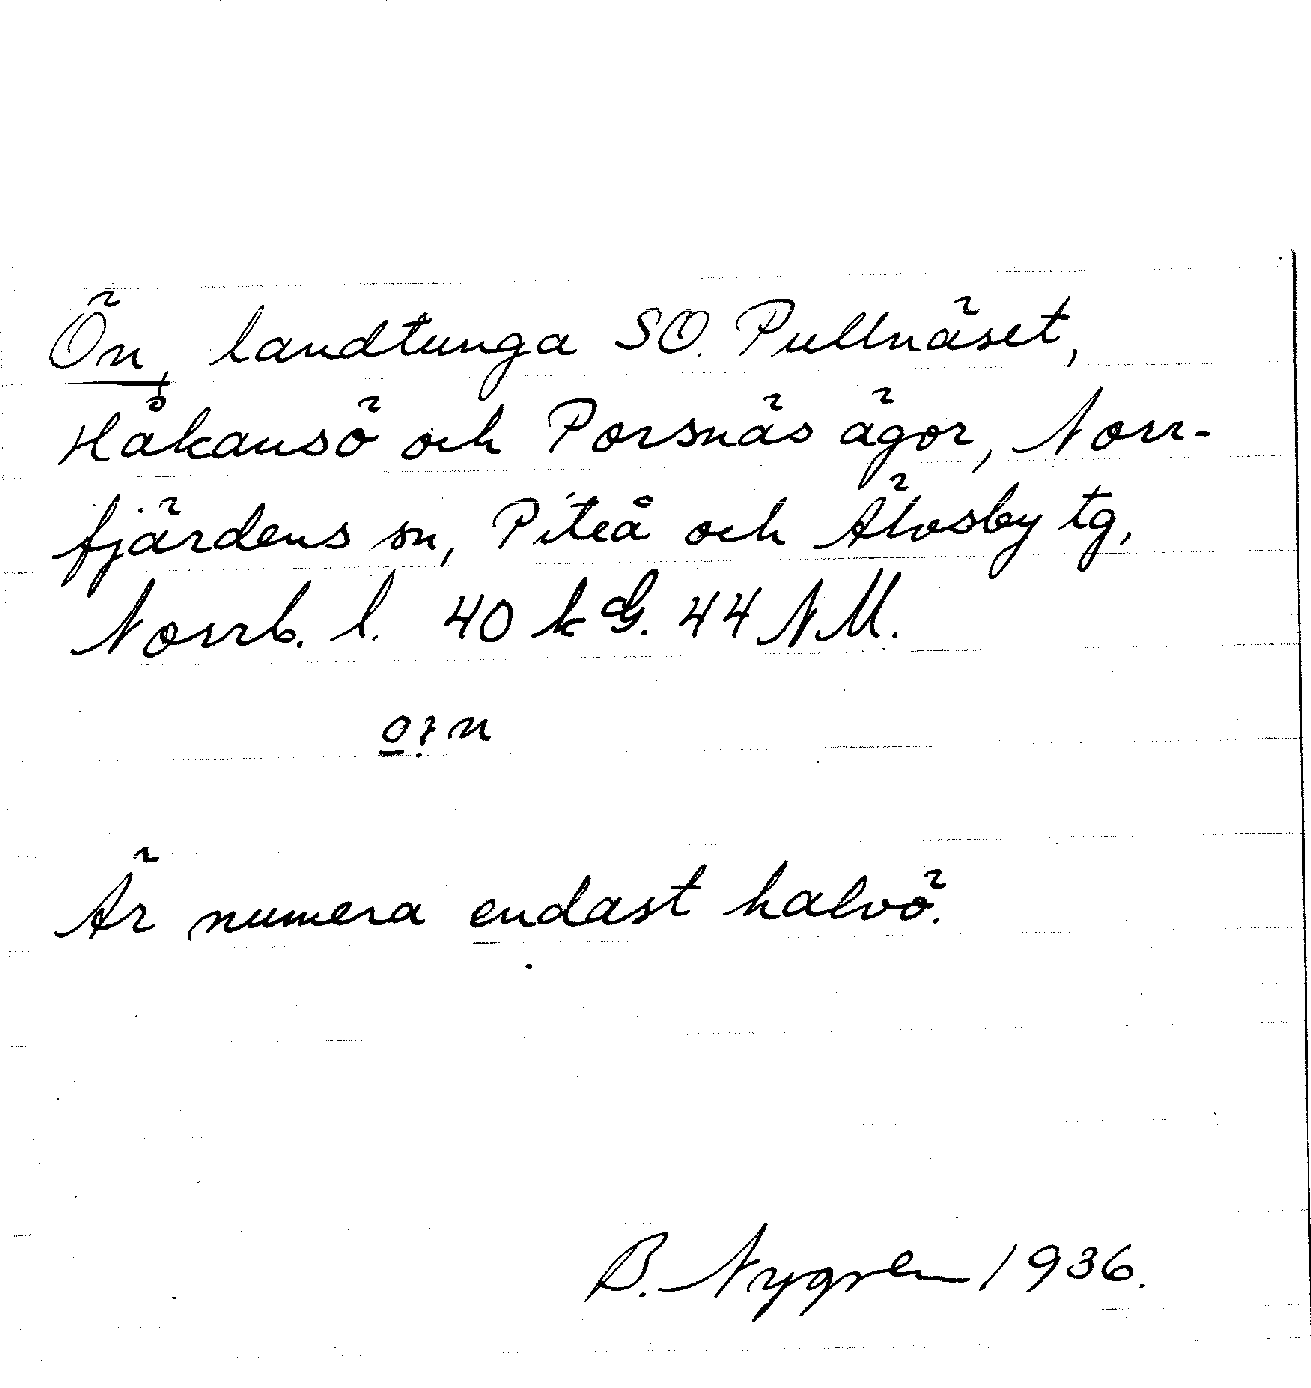 Ön, landtunga SO. Pullnäset,
Håkansö och Porsnäs ägor, Norr-
fjärdens sn, Piteå och Älvsby tg,
Norrb. l. 40 k G. 44 N M.
Är numera endast halvö.
B. Nygren 1936.